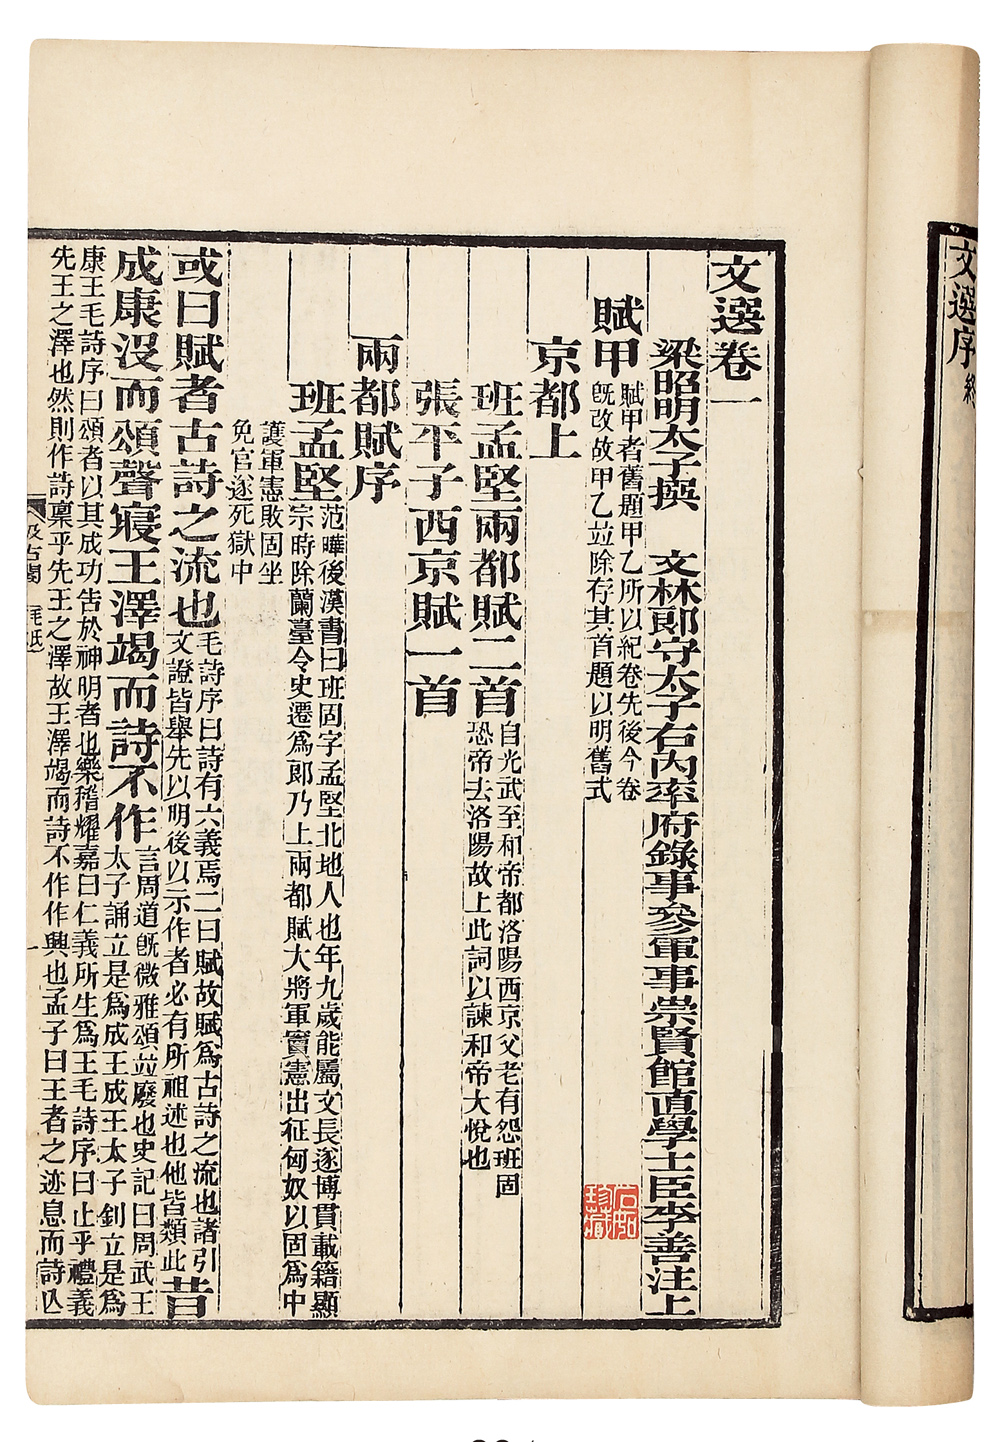 文選序終
文選卷一
梁昭明太子撰　文林郎守太子右內率府錄事參軍事崇賢館直學士臣李善注上
賦甲
賦甲者舊題甲乙所以紀卷先後今卷
旣改故甲乙並除存其首題以明舊式
京都上
班孟堅兩都賦二首
自光武至和帝都洛陽西京父老有怨班固
恐帝去洛陽故上此詞以諫和帝大悅也
張平子西京賦一首
兩都賦序
班孟堅
范曄後漢書曰班固字孟堅北地人也年九歲能屬文長遂博貫載籍顯
宗時除蘭臺令史遷爲郎乃上兩都賦大將軍竇憲出征匈奴以固爲中
護軍憲敗固坐
免官遂死獄中
或曰賦者古詩之流也
毛詩序曰詩有六義焉二曰賦故賦爲古詩之流也諸引
文證皆舉先以明後以示作者必有所祖述也他皆類此
昔
成康沒而頌聲寢王澤竭而詩不作
言周道旣微雅頌並廢也史記曰周武王
太子誦立是爲成王成王太子釗立是爲
康王毛詩序曰頌者以其成功告於神明者也樂稽耀嘉曰仁義所生爲王毛詩序曰止乎禮義
先王之澤也然則作詩稟乎先王之澤故王澤竭而詩不作作興也孟子曰王者之迹息而詩亾
汲古閣
毛氏
一